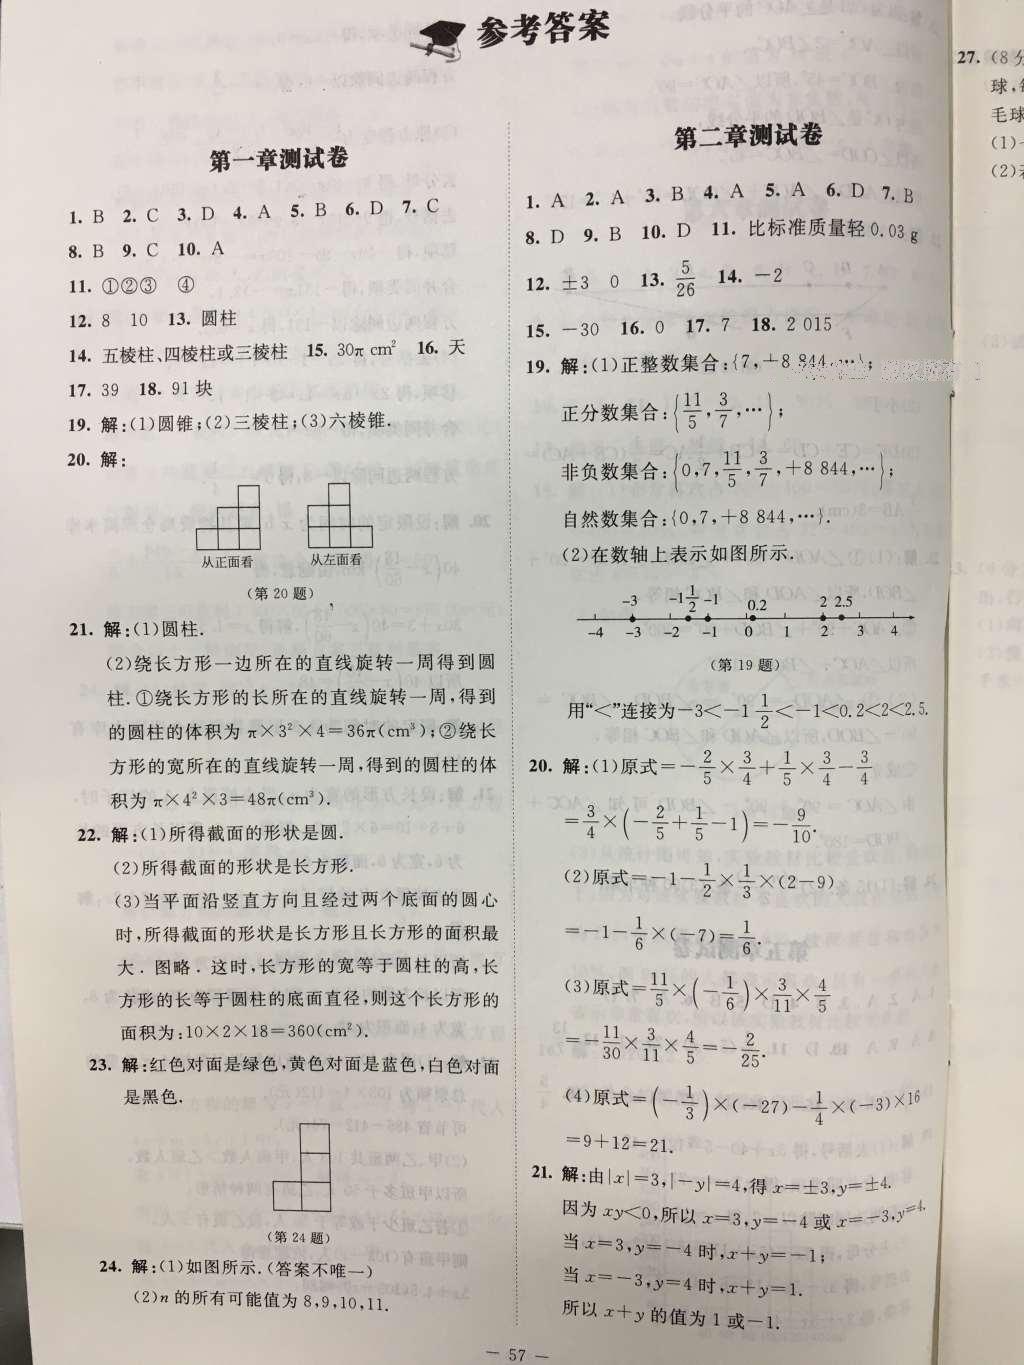 参考答案
第一章测试卷
1. B 2. C 3. D 4. A 5. B 6. D 7. C
8. B 9. C 10. A
11. ①②③ ④
12. 8 10 13. 圆柱
14. 五棱柱、四棱柱或三棱柱 15. 30π cm² 16. 天
17. 39 18. 91 块
19. 解:(1)圆锥;(2)三棱柱;(3)六棱锥.
20. 解:
从正面看 从左面看
(第 20 题)
21. 解:(1)圆柱.
(2)绕长方形一边所在的直线旋转一周得到圆
柱. ①绕长方形的长所在的直线旋转一周,得到
的圆柱的体积为 π×3²×4=36π(cm³);②绕长
方形的宽所在的直线旋转一周,得到的圆柱的体
积为 π×4²×3=48π(cm³).
22. 解:(1)所得截面的形状是圆.
(2)所得截面的形状是长方形.
(3)当平面沿竖直方向且经过两个底面的圆心
时,所得截面的形状是长方形且长方形的面积最
大. 图略. 这时,长方形的宽等于圆柱的高,长
方形的长等于圆柱的底面直径,则这个长方形的
面积为:10×2×18=360(cm²).
23. 解:红色对面是绿色,黄色对面是蓝色,白色对面
是黑色.
(第 24 题)
24. 解:(1)如图所示.(答案不唯一)
(2)n 的所有可能值为 8,9,10,11.
第二章测试卷
1. A 2. A 3. B 4. A 5. A 6. D 7. B
8. D 9. B 10. D 11. 比标准质量轻 0.03 g
12. ±3 0 13. 5/26 14. －2
15. －30 16. 0 17. 7 18. 2 015
19. 解:(1)正整数集合:{7,＋8 844,…};
正分数集合:{11/5,3/7,…};
非负数集合:{0,7,11/5,3/7,＋8 844,…};
自然数集合:{0,7,＋8 844,…}.
(2)在数轴上表示如图所示.
–3 –1 1/2 –1 0.2 2 2.5
–4 –3 –2 –1 0 1 2 3 4
(第 19 题)
用“<”连接为－3<－1 1/2<－1<0.2<2<2.5.
20. 解:(1)原式=－2/5×3/4＋1/5×3/4－3/4
=3/4×(－2/5＋1/5－1)=－9/10.
(2)原式=－1－1/2×1/3×(2－9)
=－1－1/6×(－7)=1/6.
(3)原式=11/5×(－1/6)×3/11×4/5
=－11/30×3/11×4/5=－2/25.
(4)原式=(－1/3)×(－27)－1/4×(－3)×16
=9＋12=21.
21. 解:由|x|=3,|－y|=4,得 x=±3,y=±4.
因为 xy<0,所以 x=3,y=－4 或 x=－3,y=4.
当 x=3,y=－4 时,x＋y=－1;
当 x=－3,y=4 时,x＋y=1.
所以 x＋y 的值为 1 或－1.
— 57 —
27. (8分
球,每
毛球
(1)
(2)若